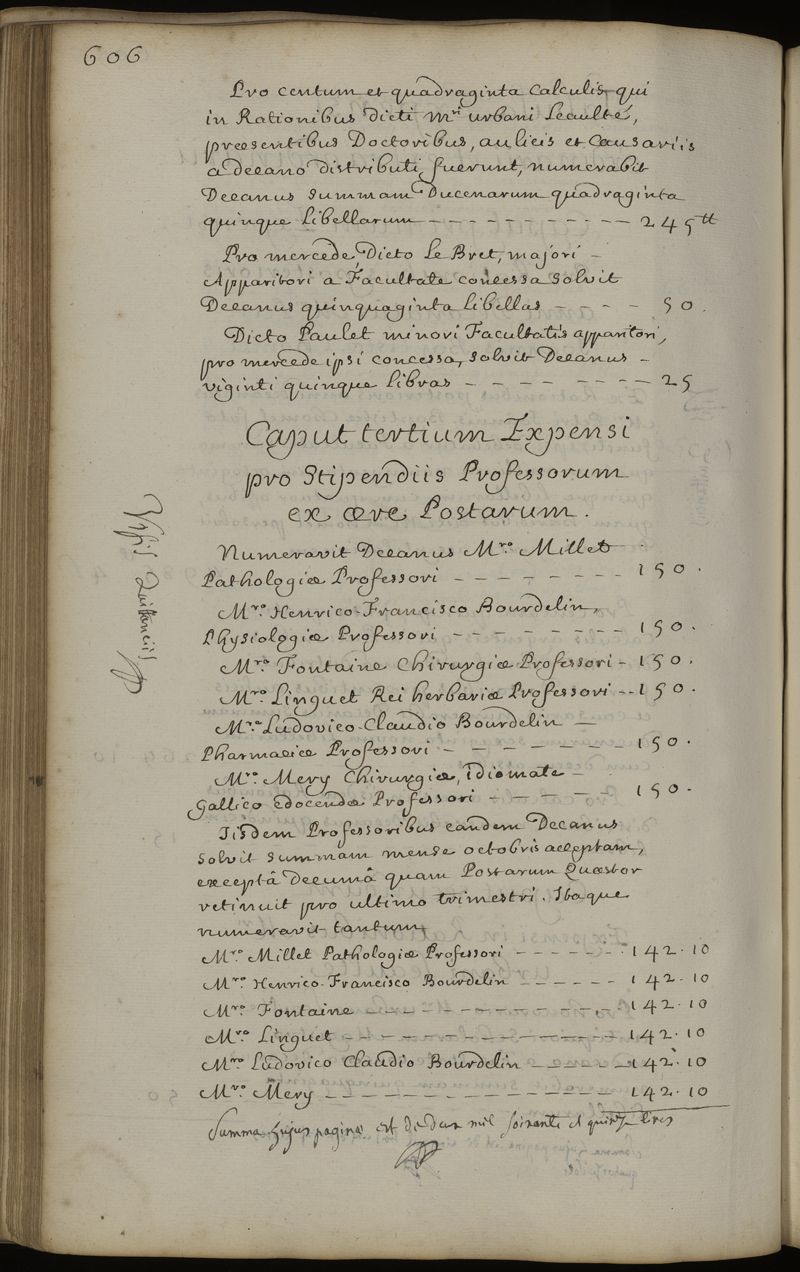 606
Pro centum et quadraginta calculis qui
in Rationibus dicti Mri urbani Leaulté,
præsentibus Doctoribus, aulicis et Causariis
a decano distributi fuerunt, numerabit
Decanus summam Ducenarum quadraginta
quinque libellarum — — — — — — — — — — 245tt
Pro mercede, Dicto Le Bret, majori —
Apparitori a Facultate concessa solvit
Decanus quinquaginta libellas — — — — 50.
Dicto Paulet minori Facultatis apparitori,
pro mercede ipsi concessa, solvit Decanus —
viginti quinque libras — — — — — — — — 25
Caput tertium Expensi
pro Stipendiis Professorum
ex ære Postarum.
Numeravit Decanus Mro Millet
Pathologiæ Professori — — — — — — — 150.
Mro Henrico-Francisco Bourdelin,
Physiologiæ Professori — — — — — — — — 150.
Mro Fontaine Chirurgiæ Professori - 150.
Mro Linguet Rei herbariæ Professori - - 150.
Mro Ludovico-Claudio Bourdelin —
Pharmaciæ Professori — — — — — — — — 150.
Mro Mery Chirurgiæ, idiomate —
Gallico edocendæ Professori — — — — — — 150.
Iisdem Professoribus eandem Decanus
solvit summam mense octobris acceptam,
exceptâ decumâ quam Postarum Quæstor
retinuit pro ultimo trimestri. Itaque
numeravit tantum
Mro Millet Pathologiæ Professori — — — — — — 142.10
Mro Henrico-Francisco Bourdelin — — — — — — 142.10
Mro Fontaine — — — — — — — — — — — — — 142.10
Mro Linguet — — — — — — — — — — — — — — 142.10
Mro Ludovico Claudio Bourdelin — — — — — — 142.10
Mro Mery — — — — — — — — — — — — — — — 142.10
Summa hujus paginæ est de deux mil soixante et quinze livres
Visis Quittanciis